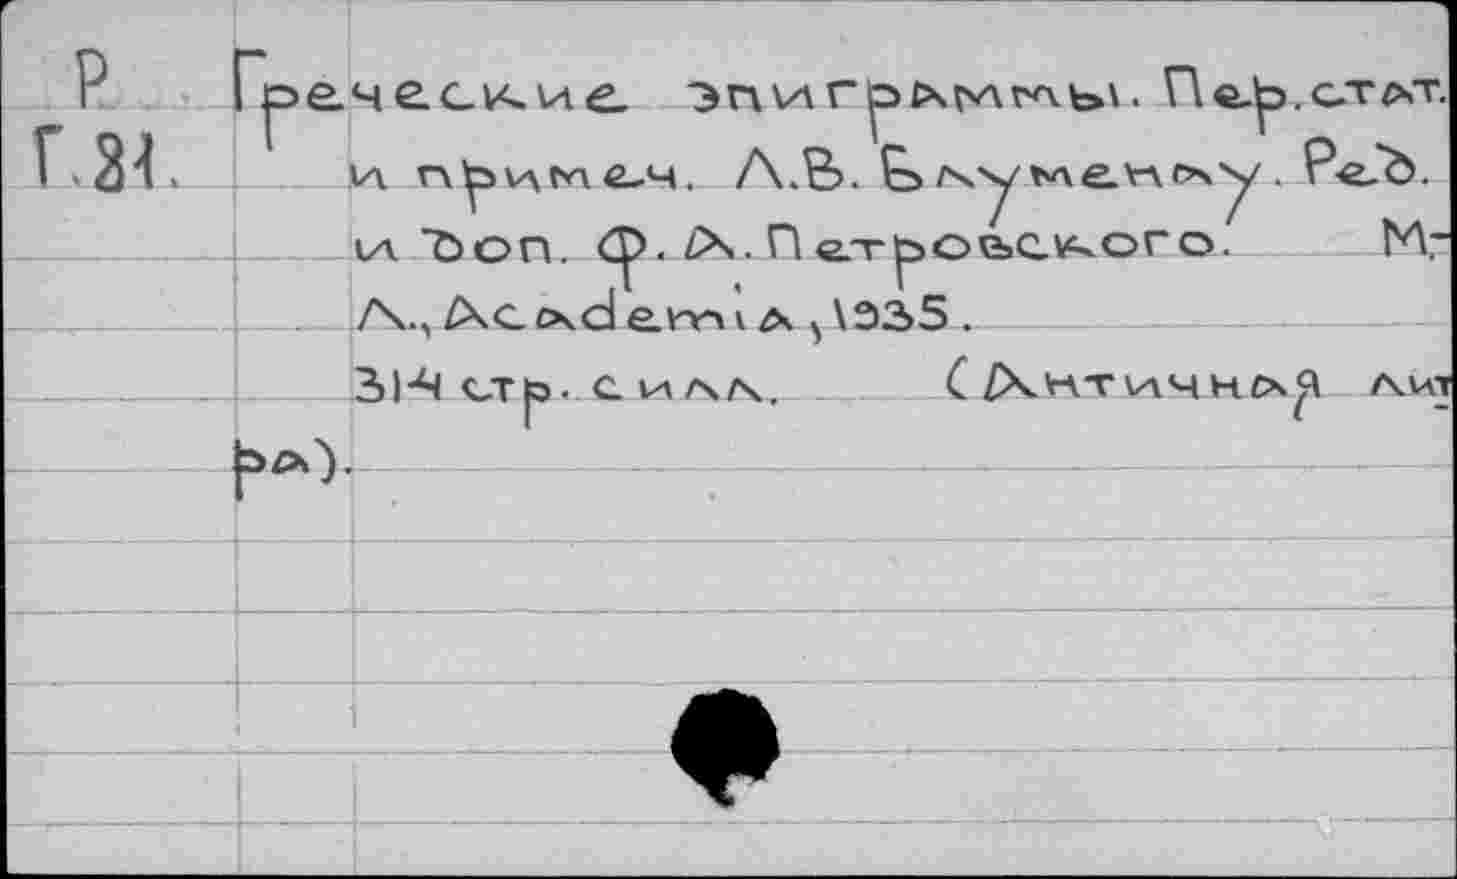 Р Греческие эпиграммы. Пер. стат.
Г.81. и примеч. Л.В. Блуменау. Ред.
и доп. Ф.А. Петровского. М.-
Л., Academia, 1935.
314 стр. с илл. (Античная лит
ра).